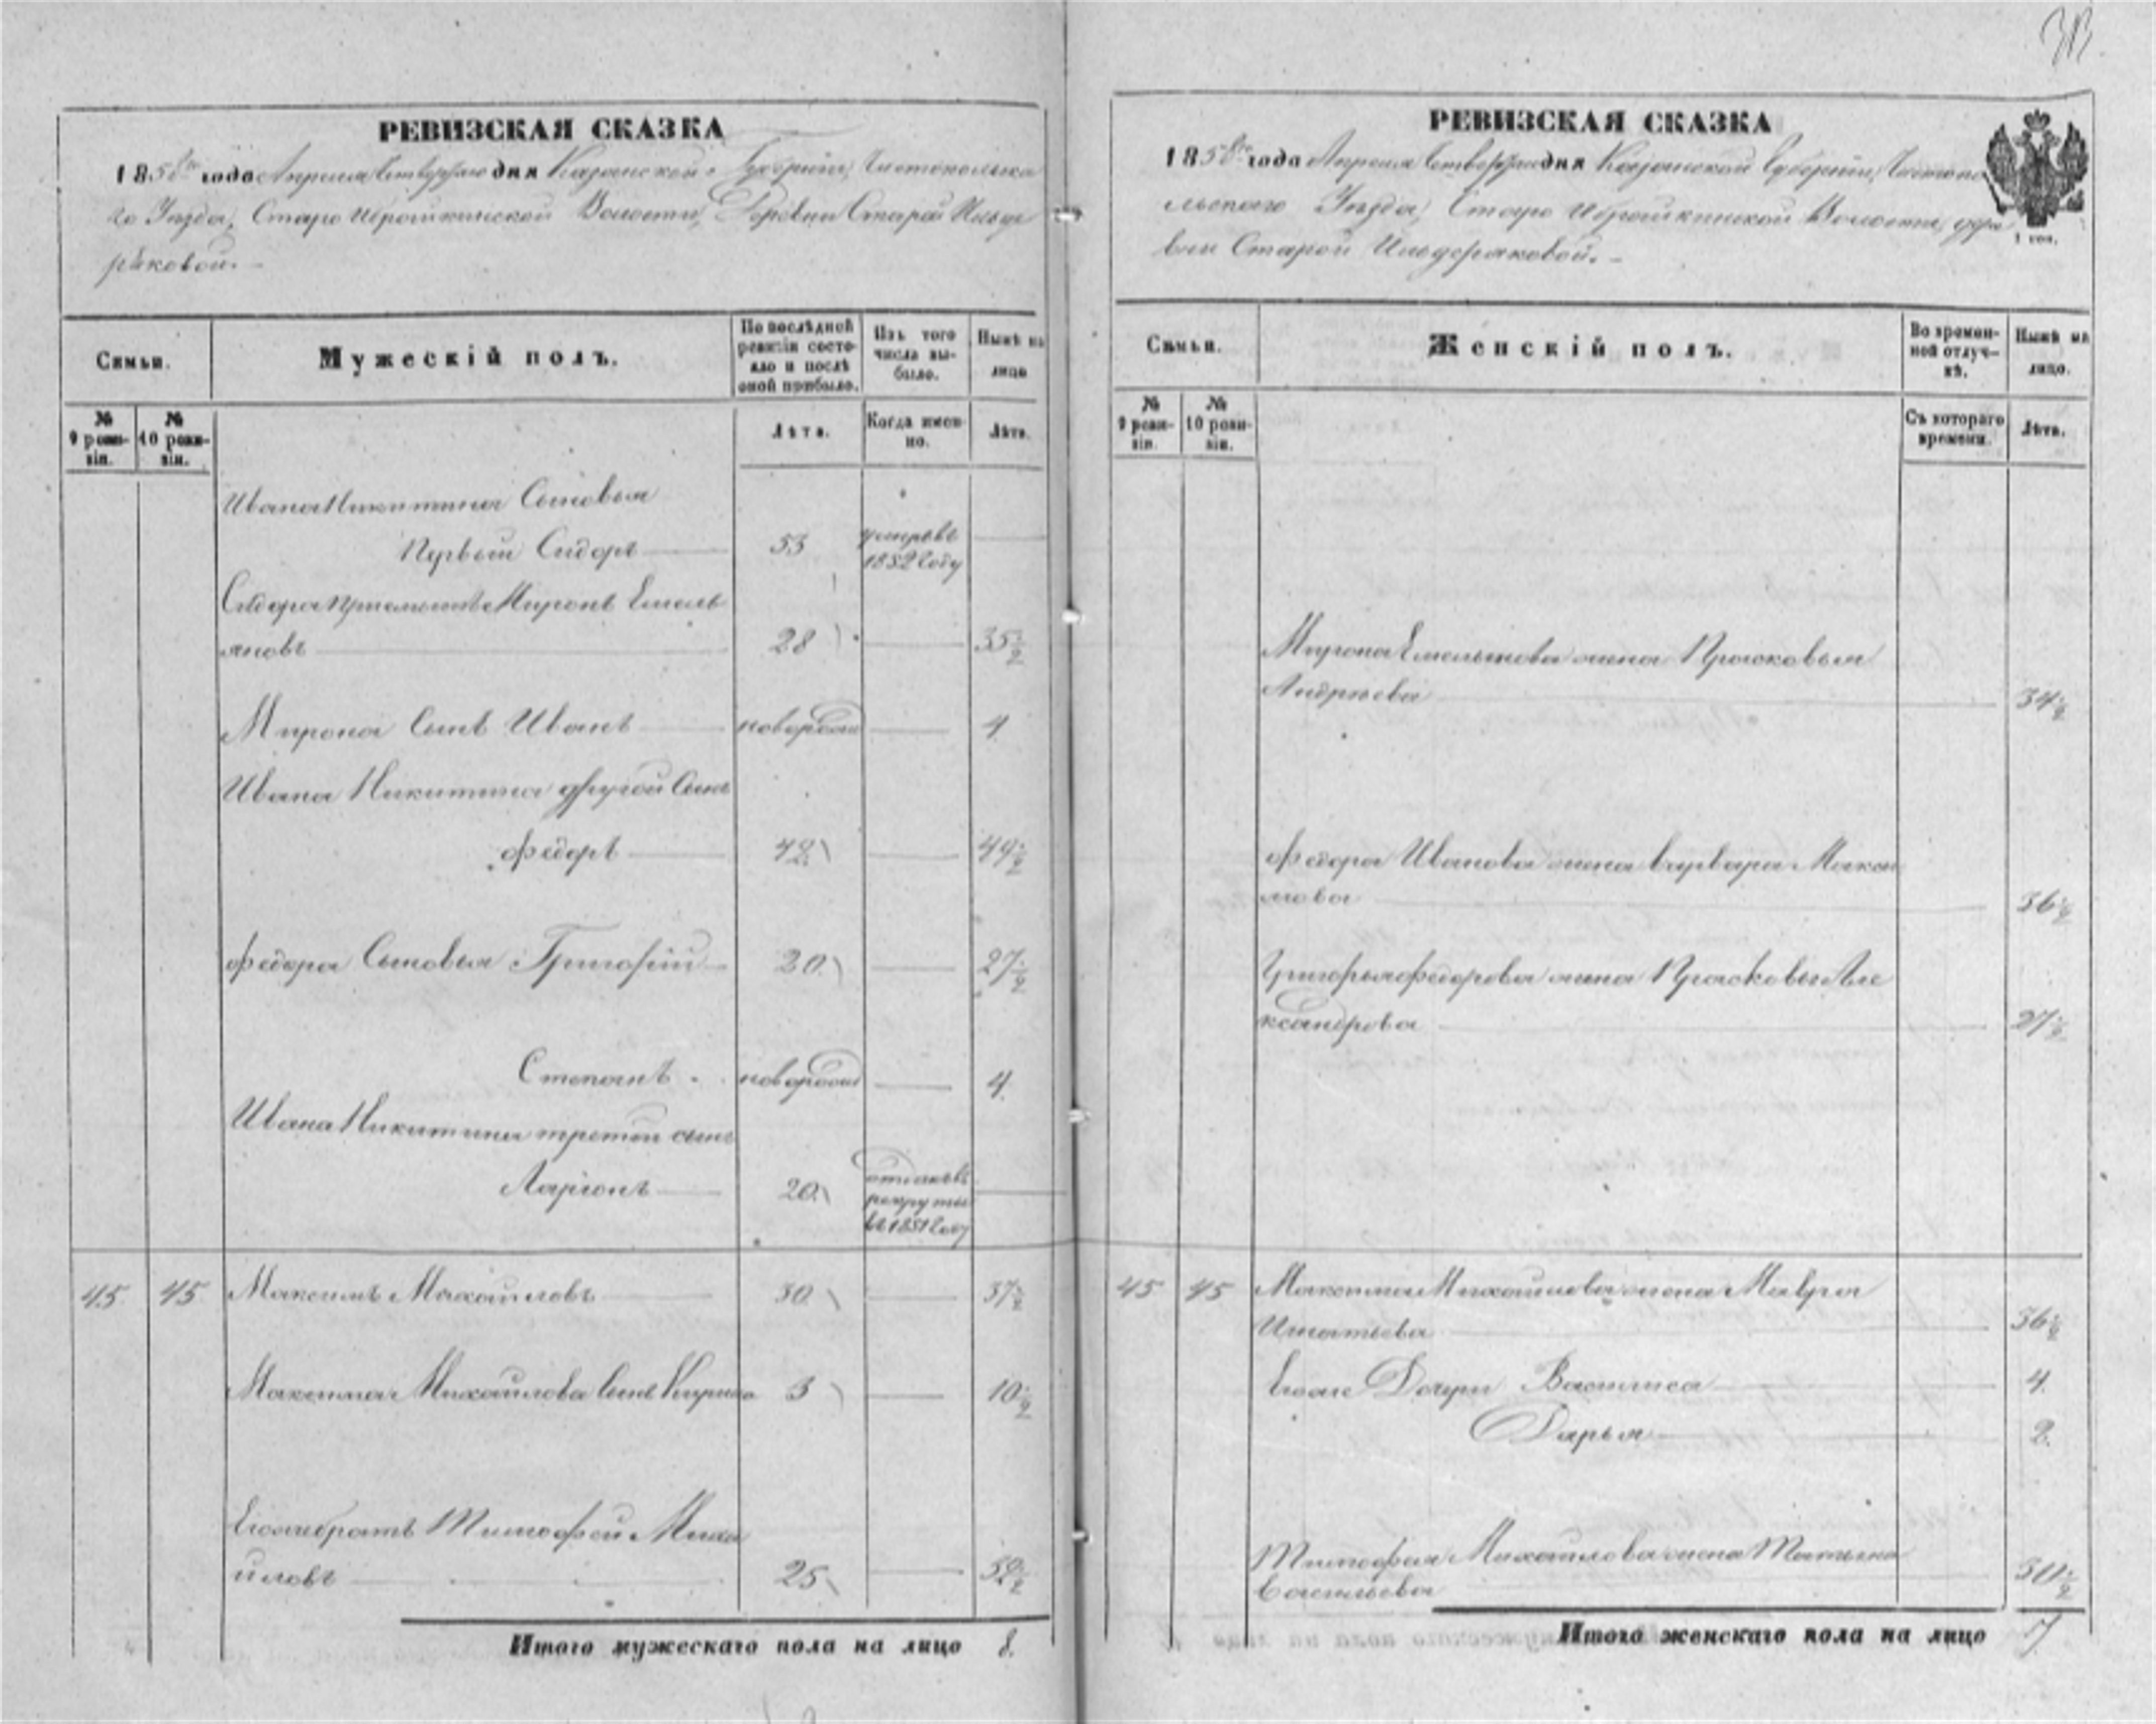 РЕВИЗСКАЯ СКАЗКА
1858го года Апреля Четвертаго дня Казанской Губерніи, Чистопольска
го Уезда, Старо Иброикинской Волости, Деревни Старой Ильде
ряковой.
Семьи.
Мужескій полъ.
По послѣдней ревизіи состояло и послѣ оной прибыло.
Изъ того числа выбыло.
Нынѣ на лицо
№ 9 ревизіи.
№ 10 ревизіи.
Лѣта.
Когда именно.
Лѣта.
Ивана Никитина Сыновья
Первый Сидоръ 53 умеръ въ 1852 году
Сидора Приемышъ Миронъ Емель
яновъ 28 35 1/2
Мирона Сынъ Иванъ новорожд 4
Ивана Никитина другой Сынъ
Федоръ 42 49 1/2
Федора Сыновья Григорій 20 27 1/2
Степанъ новорожд 4.
Ивана Никитина третій сынъ
Ларіонъ 20 отданъ въ рекруты въ 1851 году
45 45 Максимъ Михайловъ 30 37 1/2
Максима Михайлова Сынъ Кирила 3 10 1/2
Его же братъ Тимофей Миха
йловъ 25 32 1/2
Итого мужескаго пола на лицо 8.
РЕВИЗСКАЯ СКАЗКА
1858го года Апреля Четвертаго дня Казанской Губерніи, Чистопо
льскаго Уезда, Старо Иброикинской Волости, дере
вни Старой Ильдеряковой.
Семьи.
Женскій полъ.
Во временной отлучкѣ.
Нынѣ на лицо.
№ 9 ревизіи.
№ 10 ревизіи.
Съ котораго времени.
Лѣта.
Мирона Емельянова жена Прасковья
Андреева 34 1/2
Федора Иванова жена Варвара Макси
мова 36 1/2
Григорья Федорова жена Прасковья Але
ксандрова 27 1/2
45 45 Максима Михайлова жена Мавра
Игнатьева 36 1/2
Его же Дочери Василиса 4.
Дарья 2.
Тимофея Михайлова жена Татьяна
Васильева 30 1/2
Итого женскаго пола на лицо 7